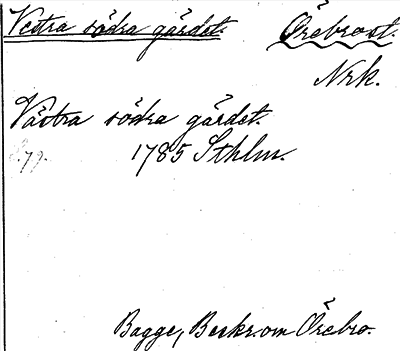 Vestra södra gärdet. Örebro st.
Nrk.
Västra södra gärdet.
s. 79. 1785 Sthlm.
Bagge, Beskr. om Örebro.